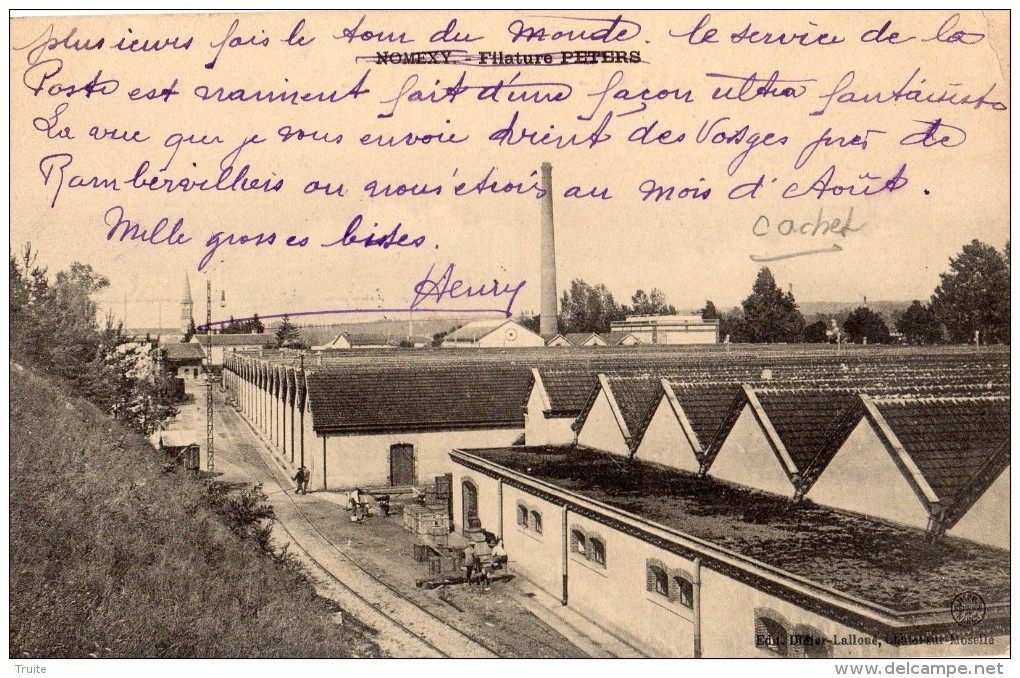 plusieurs fois le tour du monde. le service de la
NOMEXY. - Filature PETERS
Poste est vraiment fait d'une façon ultra fantaisiste
La vue que je vous envoie vient des Vosges près de
Rambervilhers ou nous étrois au mois d'Août.
Mille grosses bises.
cachet
Henry
Edit. Didier-Lalloué, Châtel-sur-Moselle
Truite
www.delcampe.net